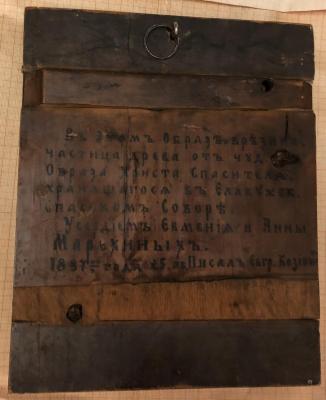 Въ этомъ Образѣ врѣзана
частица древа отъ чуд
Образа Христа Спасителя
хранящагося въ Елабужск.
Спасскомъ Соборѣ.
Усердіемъ Евменія и Анны
Марьхиныхъ.
1897 года Писалъ Евгр.